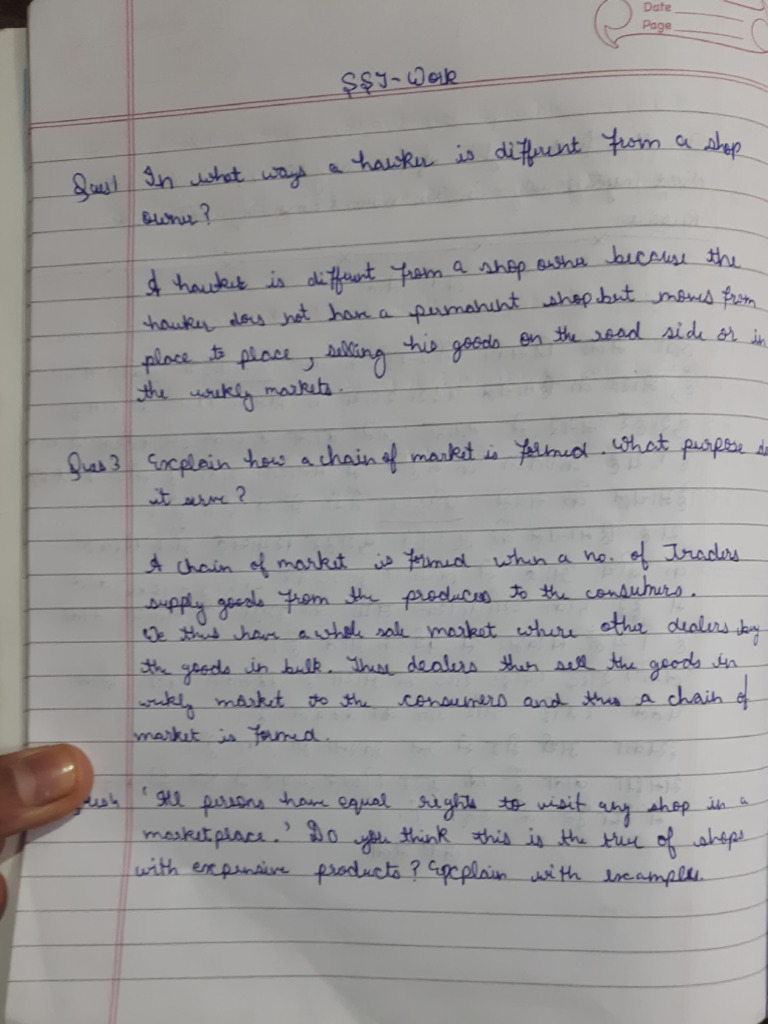 Date
Page
SST-Work
Ques1 In what ways a hawker is different from a shop
owner?
A hawker is diffrent from a shop owner because the
hawker does not have a permanent shop but moves from
place to place, selling his goods on the road side or in
the weekly markets.
Ques 3 Explain how a chain of market is formed. What purpose do
it serve?
A chain of market is formed when a no. of Traders
supply goods from the producers to the consumers.
We thus have a whole sale market where other dealers buy
the goods in bulk. These dealers then sell the goods in
weekly market to the consumers and thus a chain of
market is formed.
'All persons have equal rights to visit any shop in a
marketplace.' Do you think this is the true of shops
with expensive products? Explain with examples.